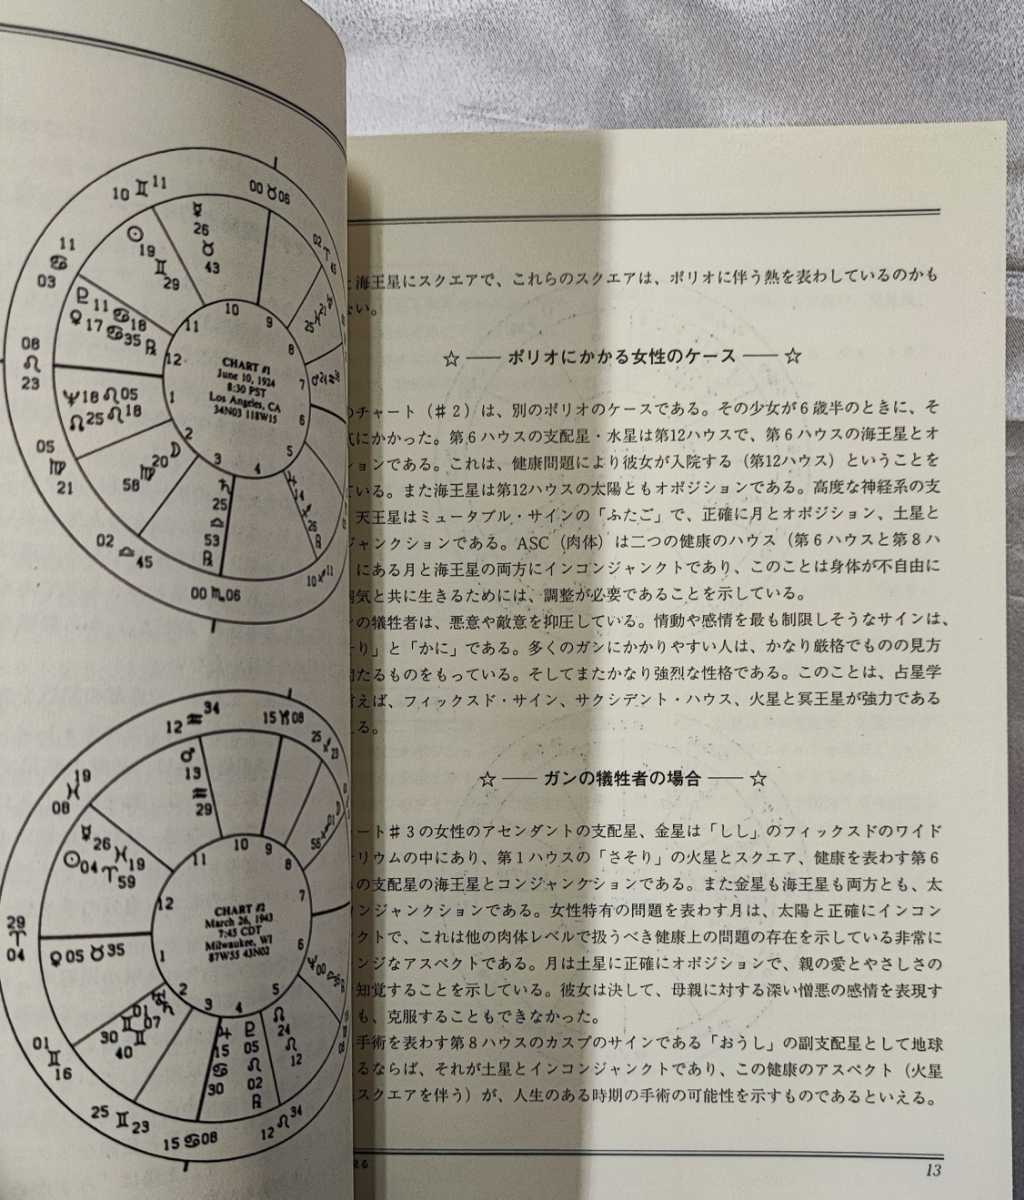 10 ♊ 11
00 ♉ 06
☿
26
♉
43
☉
19
♊
29
11
♋
03
♇ 11 ♋ 18
♀ 17 ♋ 35 ℞
08
♌
23
♆ 18 ♌ 05
☊ 25 ♌ 18
05
♍
21
☽
20
♍
58
02 ♎ 45
♄
25
♎
53
℞
00 ♏ 06
10 ♐ 11
10
9
8
7
6
5
4
3
2
1
12
11
CHART #1
June 10, 1924
8:30 PST
Los Angeles, CA
34N03 118W15
12 ♒ 34
15 ♑ 08
25 ♐ 23
♂
13
♒
29
19
♓
08
☿ 26 ♓ 19
☉ 04 ♈ 59
29
♈
04
♀ 05 ♉ 35
01
♊
16
25 ♊ 23
15 ♋ 08
12 ♌ 34
♃
15
♋
30
♇
05
♌
02
℞
☊
24
♌
12
10
9
8
7
6
5
4
3
2
1
12
11
CHART #2
March 26, 1943
7:45 CDT
Milwaukee, WI
87W55 43N02
海王星にスクエアで、これらのスクエアは、ポリオに伴う熱を表わしているのかも
い。
☆ ── ポリオにかかる女性のケース ── ☆
チャート（♯2）は、別のポリオのケースである。その少女が6歳半のときに、そ
にかかった。第6ハウスの支配星・水星は第12ハウスで、第6ハウスの海王星とオ
ションである。これは、健康問題により彼女が入院する（第12ハウス）ということを
ている。また海王星は第12ハウスの太陽ともオポジションである。高度な神経系の支
天王星はミュータブル・サインの「ふたご」で、正確に月とオポジション、土星と
ジャンクションである。ASC（肉体）は二つの健康のハウス（第6ハウスと第8ハ
にある月と海王星の両方にインコンジャンクトであり、このことは身体が不自由に
気と共に生きるためには、調整が必要であることを示している。
の犠牲者は、悪意や敵意を抑圧している。情動や感情を最も制限しそうなサインは、
り」と「かに」である。多くのガンにかかりやすい人は、かなり厳格でものの見方
たるものをもっている。そしてまたかなり強烈な性格である。このことは、占星学
えば、フィックスド・サイン、サクシデント・ハウス、火星と冥王星が強力である
る。
☆ ── ガンの犠牲者の場合 ── ☆
ート♯3の女性のアセンダントの支配星、金星は「しし」のフィックスドのワイド
リウムの中にあり、第1ハウスの「さそり」の火星とスクエア、健康を表わす第6
の支配星の海王星とコンジャンクションである。また金星も海王星も両方とも、太
ンジャンクションである。女性特有の問題を表わす月は、太陽と正確にインコン
クトで、これは他の肉体レベルで扱うべき健康上の問題の存在を示している非常に
ンジなアスペクトである。月は土星に正確にオポジションで、親の愛とやさしさの
知覚することを示している。彼女は決して、母親に対する深い憎悪の感情を表現す
も、克服することもできなかった。
手術を表わす第8ハウスのカスプのサインである「おうし」の副支配星として地球
るならば、それが土星とインコンジャンクトであり、この健康のアスペクト（火星
スクエアを伴う）が、人生のある時期の手術の可能性を示すものであるといえる。
26
13